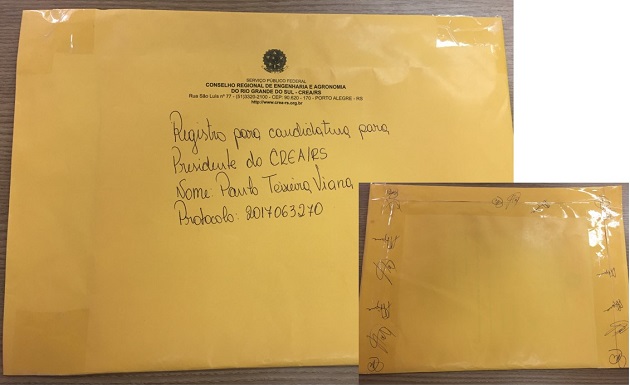 SERVIÇO PÚBLICO FEDERAL
CONSELHO REGIONAL DE ENGENHARIA E AGRONOMIA
DO RIO GRANDE DO SUL - CREA/RS
Rua São Luís nº 77 - (51)3320-2100 - CEP: 90.620 - 170 - PORTO ALEGRE - RS
http://www.crea-rs.org.br
Registro para candidatura para
Presidente do CREA/RS
Nome: Paulo Teixeira Viana
Protocolo: 2017063270